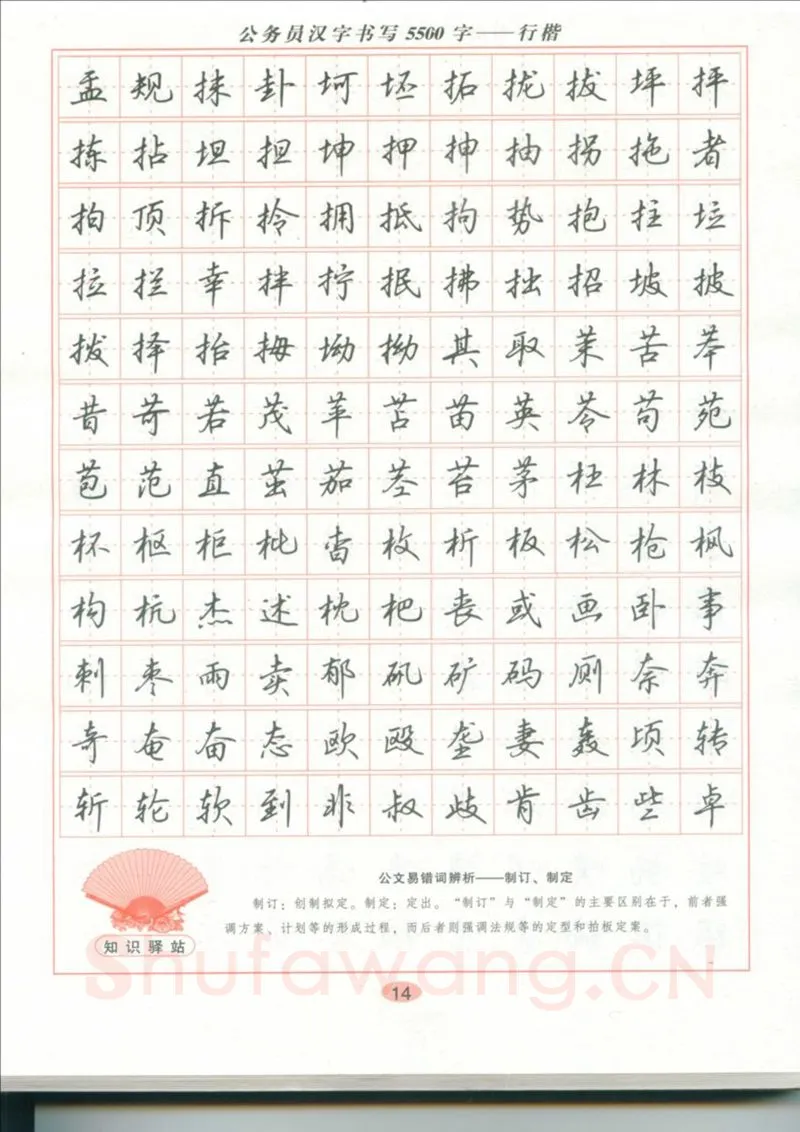 公务员汉字书写5500字——行楷
孟规抹卦坷坯拓拢拔坪抨
拣拈坦担坤押抻抽拐拖者
拍顶拆拎拥抵拘势抱拄垃
拉拦幸拌拧抿拂拙招坡披
拨择抬拇坳拗其取茉苦苯
昔苛若茂苹苫苗英苓苟苑
苞范直茁茄茎苔茅枉林枝
杯枢柜枇杳枚析板松枪枫
构杭杰述枕杷丧或画卧事
刺枣雨卖郁矾矿码厕奈奔
奇奄奋态欧殴垄妻轰顷转
斩轮软到非叔歧肯齿些卓
公文易错词辨析——制订、制定
制订：创制拟定。制定：定出。“制订”与“制定”的主要区别在于，前者强
调方案、计划等的形成过程，而后者则强调法规等的定型和拍板定案。
知识驿站
Shufawang.CN
14